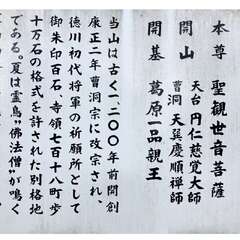 本尊 聖観世音菩薩
開山 天台 円仁慈覚大師
曹洞 天巽慶順禅師
開基 葛原一品親王
当山は古く一二〇〇年前開創
康正二年曹洞宗に改宗され、
徳川初代将軍の祈願所として
御朱印百石、寺領七百十八町歩
十万石の格式を許された別格地
である。夏は霊鳥“佛法僧”が鳴く